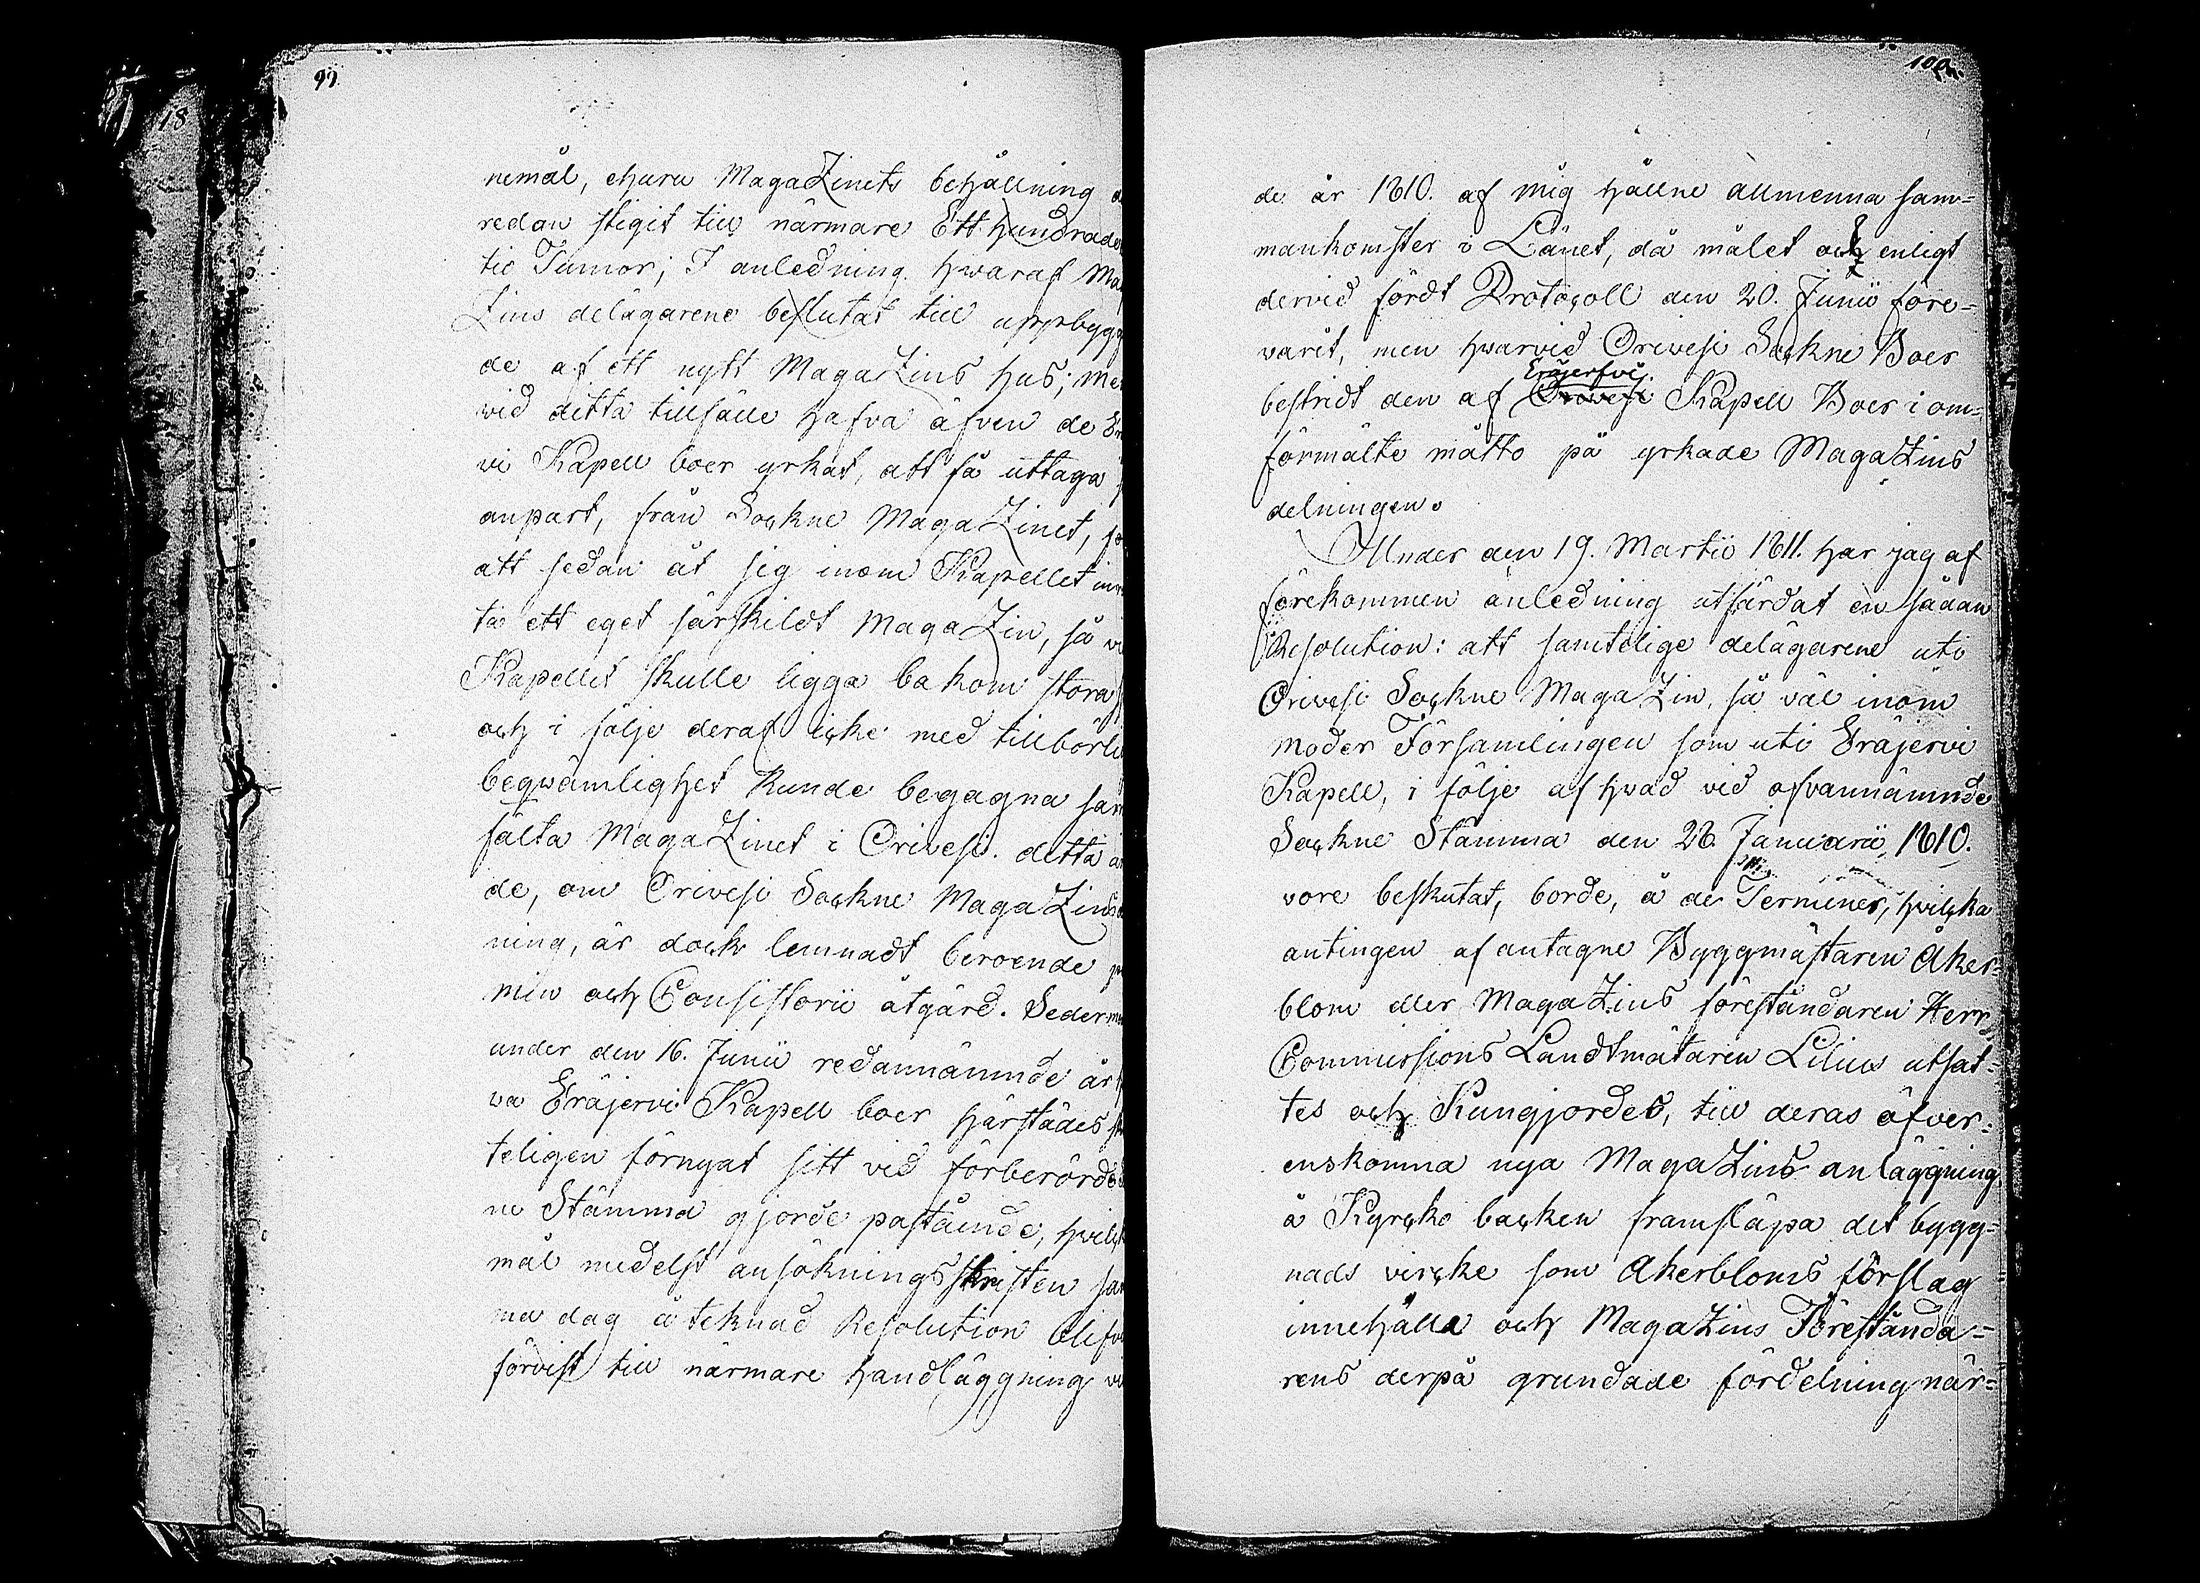 99
18
nemål, ehuru MagaZinets behållning
redan stigit till närmare Ett hundrade
tio Tunnor; I anledning hwaraf Ma
Zins delägarene beslutat till uppbygg
de af ett nytt MagaZins hus; me
vid detta tillfälle hafva äfven de
vi Kapell boer yrkat, att få uttaga
anpart, från Sockne MagaZinet,
att sedan åt sig inom Kapellet
ta ett eget särskildt MagaZin, så
Kapellet skulle ligga bakom stora
och i följe deraf icke med tillbörli
beqwämlighet kunde begagna sam
fälta MagaZinet i Orivesi. detta
de, om Orivesi Sockne MagaZins
ning, är dock lemnadt beroende
min och Consistorii åtgärd. Seder
under den 16. Junii redannämnde år
va Eräjervi Kapell boer härstädes
teligen förnyat sitt vid förberörde
ne Stämma gjorde påstående, hvilc
mål medelst ansökningsskriften sam
ma dag å teknad Resolution blifv
förvist till närmare handläggning
100.
de år 1810. af mig hållne allmenna sam=
mankomster i Länet, då målet ock enligt
dervid fördt Protocoll den 20. Junii före=
varit, men hwarvid Orivesi Sockne Boer
Eräjerfvi
bestridt den af Orivesi Kapell Boer i om=
förmälte måtto på yrkade MagaZins
delningen.
Under den 19. Martii 1811. har jag af
förekommen anledning utfärdat en sådan
Resolution: att samtelige delägarene uti
Orivesi Sockne MagaZin, så väl inom
moder Församlingen som uti Eräjervi
Kapell, i följe af hvad vid ofvannämnde
Sockne Stämma den 28. Januarii 1810.
vore beslutat, borde, å de Terminer, hvilcka
antingen af antagne Byggmästaren Åker=
blom eller MagaZins föreståndaren Herr
Commissions Landtmätaren Lilius utsat=
tes och Kungjordes, till deras öfver=
enskomna nya MagaZins anläggning
å Kyrcko backen framsläpa det bygg=
nads vircke som Åkerbloms förslag
innehålla och MagaZins Förestånda=
rens derpå grundade fördelning när=